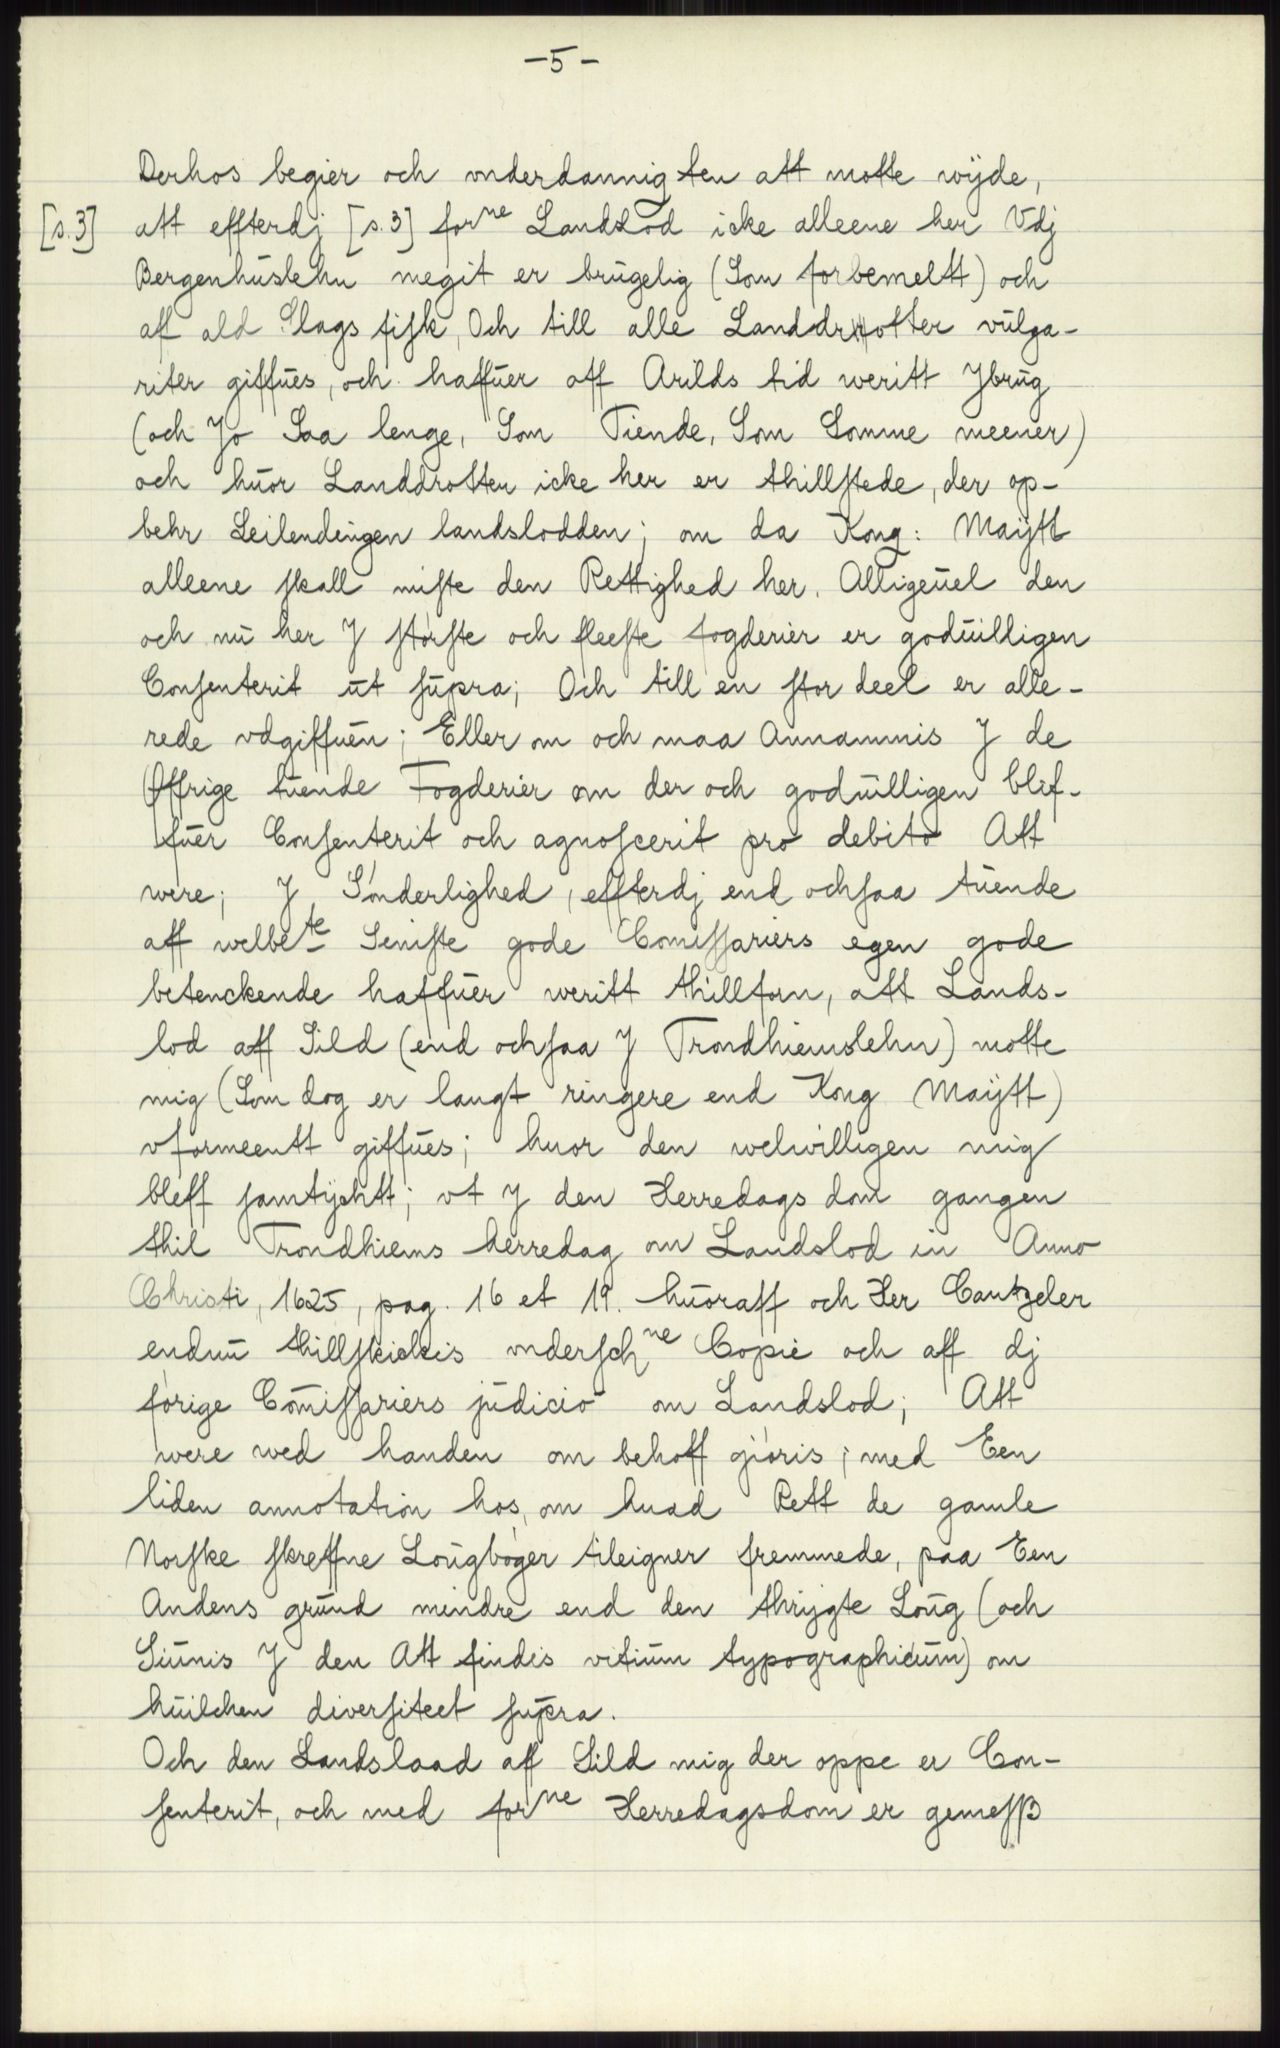 -5-
Derhos begier och vnderdannigsten att motte wijde,
[s.3] att effterdj [s.3] forne Landslod icke alleene her Vdj
Bergenhuslehn megit er brugelig (Som forbemeltt) och
aff ald Slags fisk, Och till alle Landdrotter vulga-
riter giffues, och haffuer aff Arilds tid weritt Jbrug
(och Jo Saa lenge, Som Tiende, Som Somme meener)
och huor Landdrotten icke her er thillstede, der op-
behr Leilendingen landslodden; om da Kong: Maÿtt
alleene skall miste den Rettighed her. Alligeuel den
och nu her J største och fleeste fogderier er goduilligen
Consenterit ut supra; Och till en stor deel er alle-
rede vdgiffuen; Eller om och maa Annammis J de
Øffrige tuende Fogderier om der och goduilligen blif-
fuer Consenterit och agnoscerit pro debito Att
were; J Sønderlighed, effterdj end ochsaa tuende
aff welbete Seniste gode Comissariers egen gode
betenckende haffuer weritt thillforn, att Lands-
lod aff Sild (end ochsaa J Trondhiemslehn) motte
mig (Som dog er langt ringere end Kong Maÿtt)
vformeentt giffues; huor den welwilligen mig
bleff samtÿchtt; vt J den Herredags dom gangen
thil Trondhiems herredag om Landslod in Anno
Christi, 1625, pag. 16 et 19. huoraff och Her Cantzeler
endnu thillskickis vnderschne Copie och aff dj
førige Comissariers judicio om Landslod; Att
were wed handen om behoff giøris; med Een
liden annotation hos, om huad Rett de gamle
Norske skreffne Lougbøger tileigner fremmede, paa Een
Andens grund mindre end den thrÿgte Loug (och
Siunis J den Att findis vitium typographicum) om
huilchen diversiteet supra.
Och den Landslaad aff Sild mig der oppe er Con-
senterit, och med forne Herredagsdom er gemess